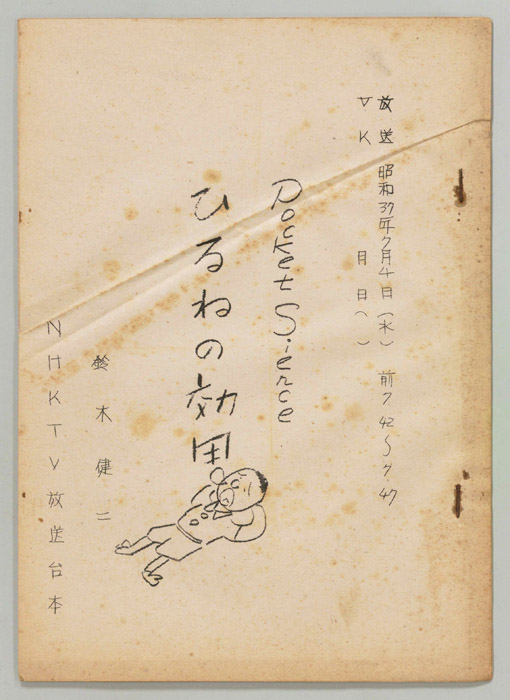 放送 昭和37年7月4日(水) 前7.42〜7.47
▽K 月 日( )
Pocket Sience
ひるねの効用
鈴木健二
NHKTV放送台本